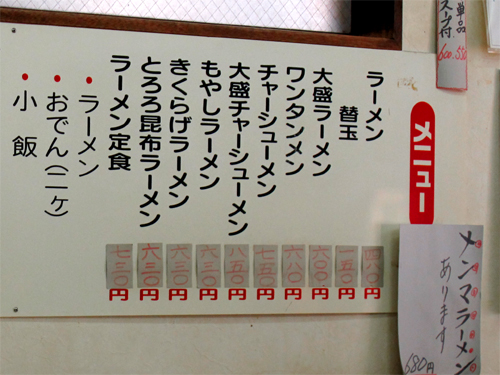 メニュー
ラーメン 四八〇円
替玉 一五〇円
大盛ラーメン 六〇〇円
ワンタンメン 六八〇円
チャーシューメン 七五〇円
大盛チャーシューメン 八五〇円
もやしラーメン 六三〇円
きくらげラーメン 六三〇円
とろろ昆布ラーメン 六三〇円
ラーメン定食 七三〇円
・ラーメン
・おでん(二ヶ)
・小飯
単品
スープ付
メンマラーメン
あります
680円